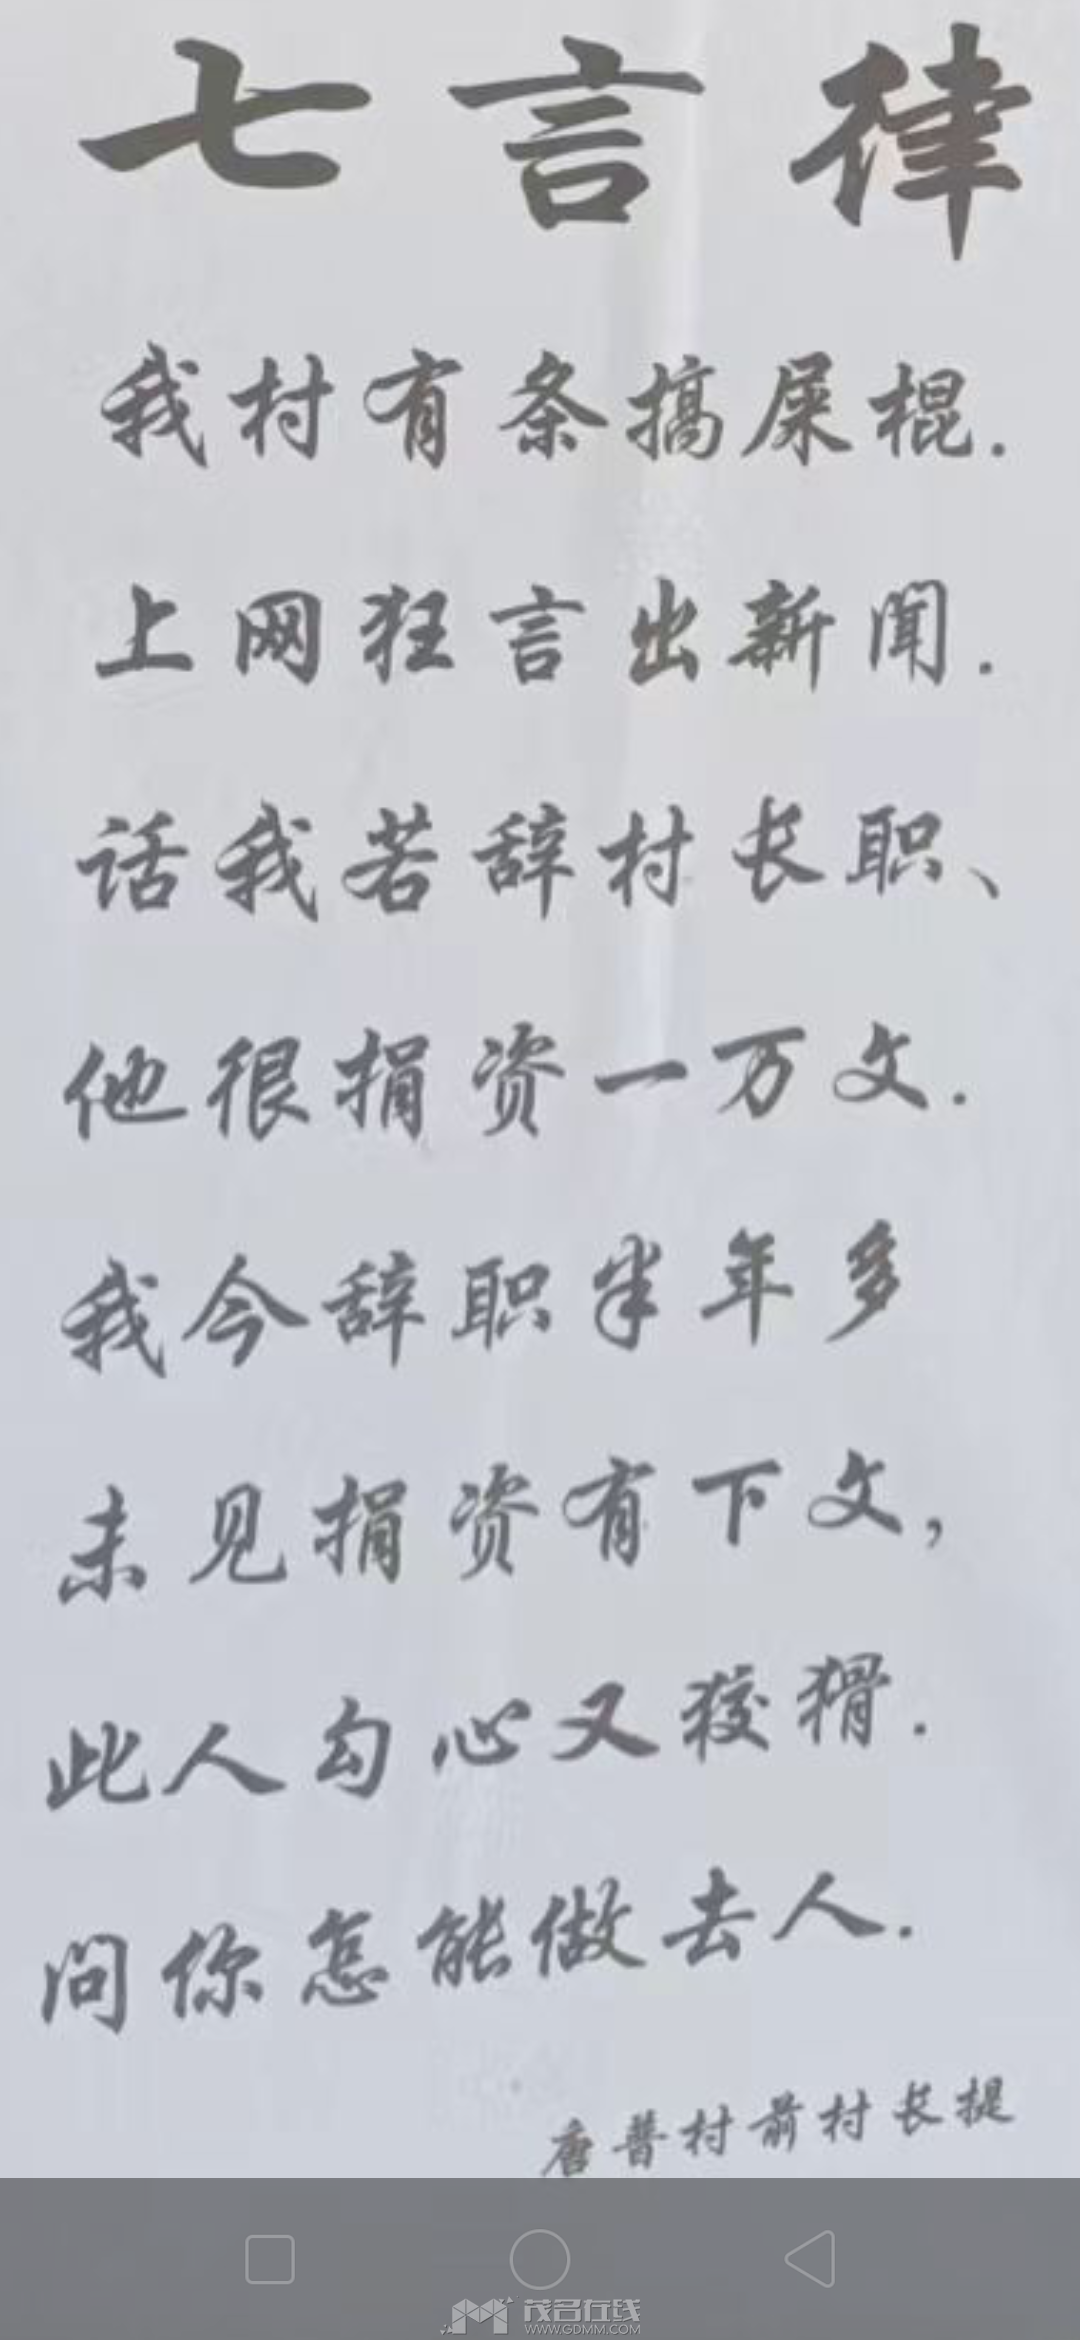 七言律
我村有条搞屎棍.
上网狂言出新闻.
话我若辞村长职、
他很捐资一万文.
我今辞职半年多
未见捐资有下文,
此人勾心又狡猾.
问你怎能做去人.
唐普村前村长提
茂名在线
WWW.GDMM.COM